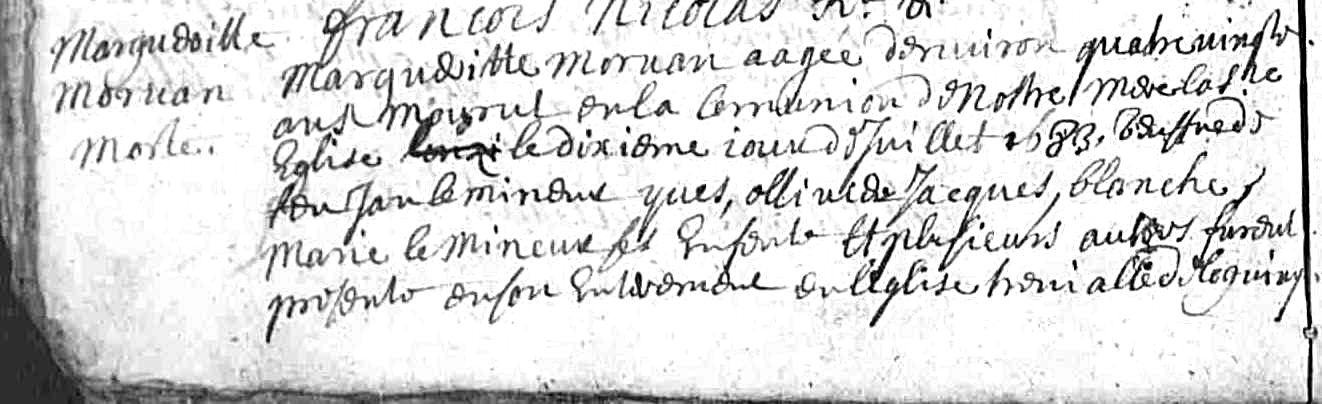 françois Nicolas
Margueritte
Morvan
Morte.
Margueritte Morvan aagée denviron quatre vingts
ans Mourut en la Communion de Nostre Mere la Ste
Eglise le dixieme iour de Juillet 1683. veufve de
feu Jan le Mineur yves, ollivier Jacques, blanche,
Marie le Mineur ses Enfents Et plusieurs autres furent
presents en son Enterement en l'église trevialle de loguivy.